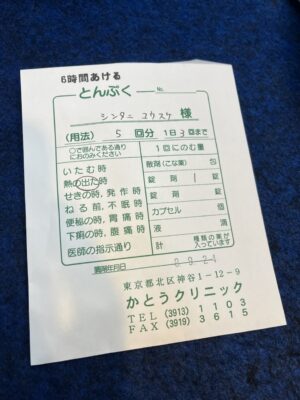 6時間あける
とんぷく
No.
シンタニ ユウスケ 様
(用法) 5 回分 1日 3 回まで
○で囲んである通りにおのみください
1回にのむ量
いたむ時
熱の出た時
せきの時, 発作時
ねる前, 不眠時
便秘の時, 胃痛時
下痢の時, 腹痛時
医師の指示通り
散剤(こな薬) 包
錠剤 1 錠
錠剤 錠
カプセル 個
液 滴
計 種類の薬が入っています
調剤年月日
東京都北区神谷1-12-9
かとうクリニック
TEL (3913) 1103
FAX (3919) 3615